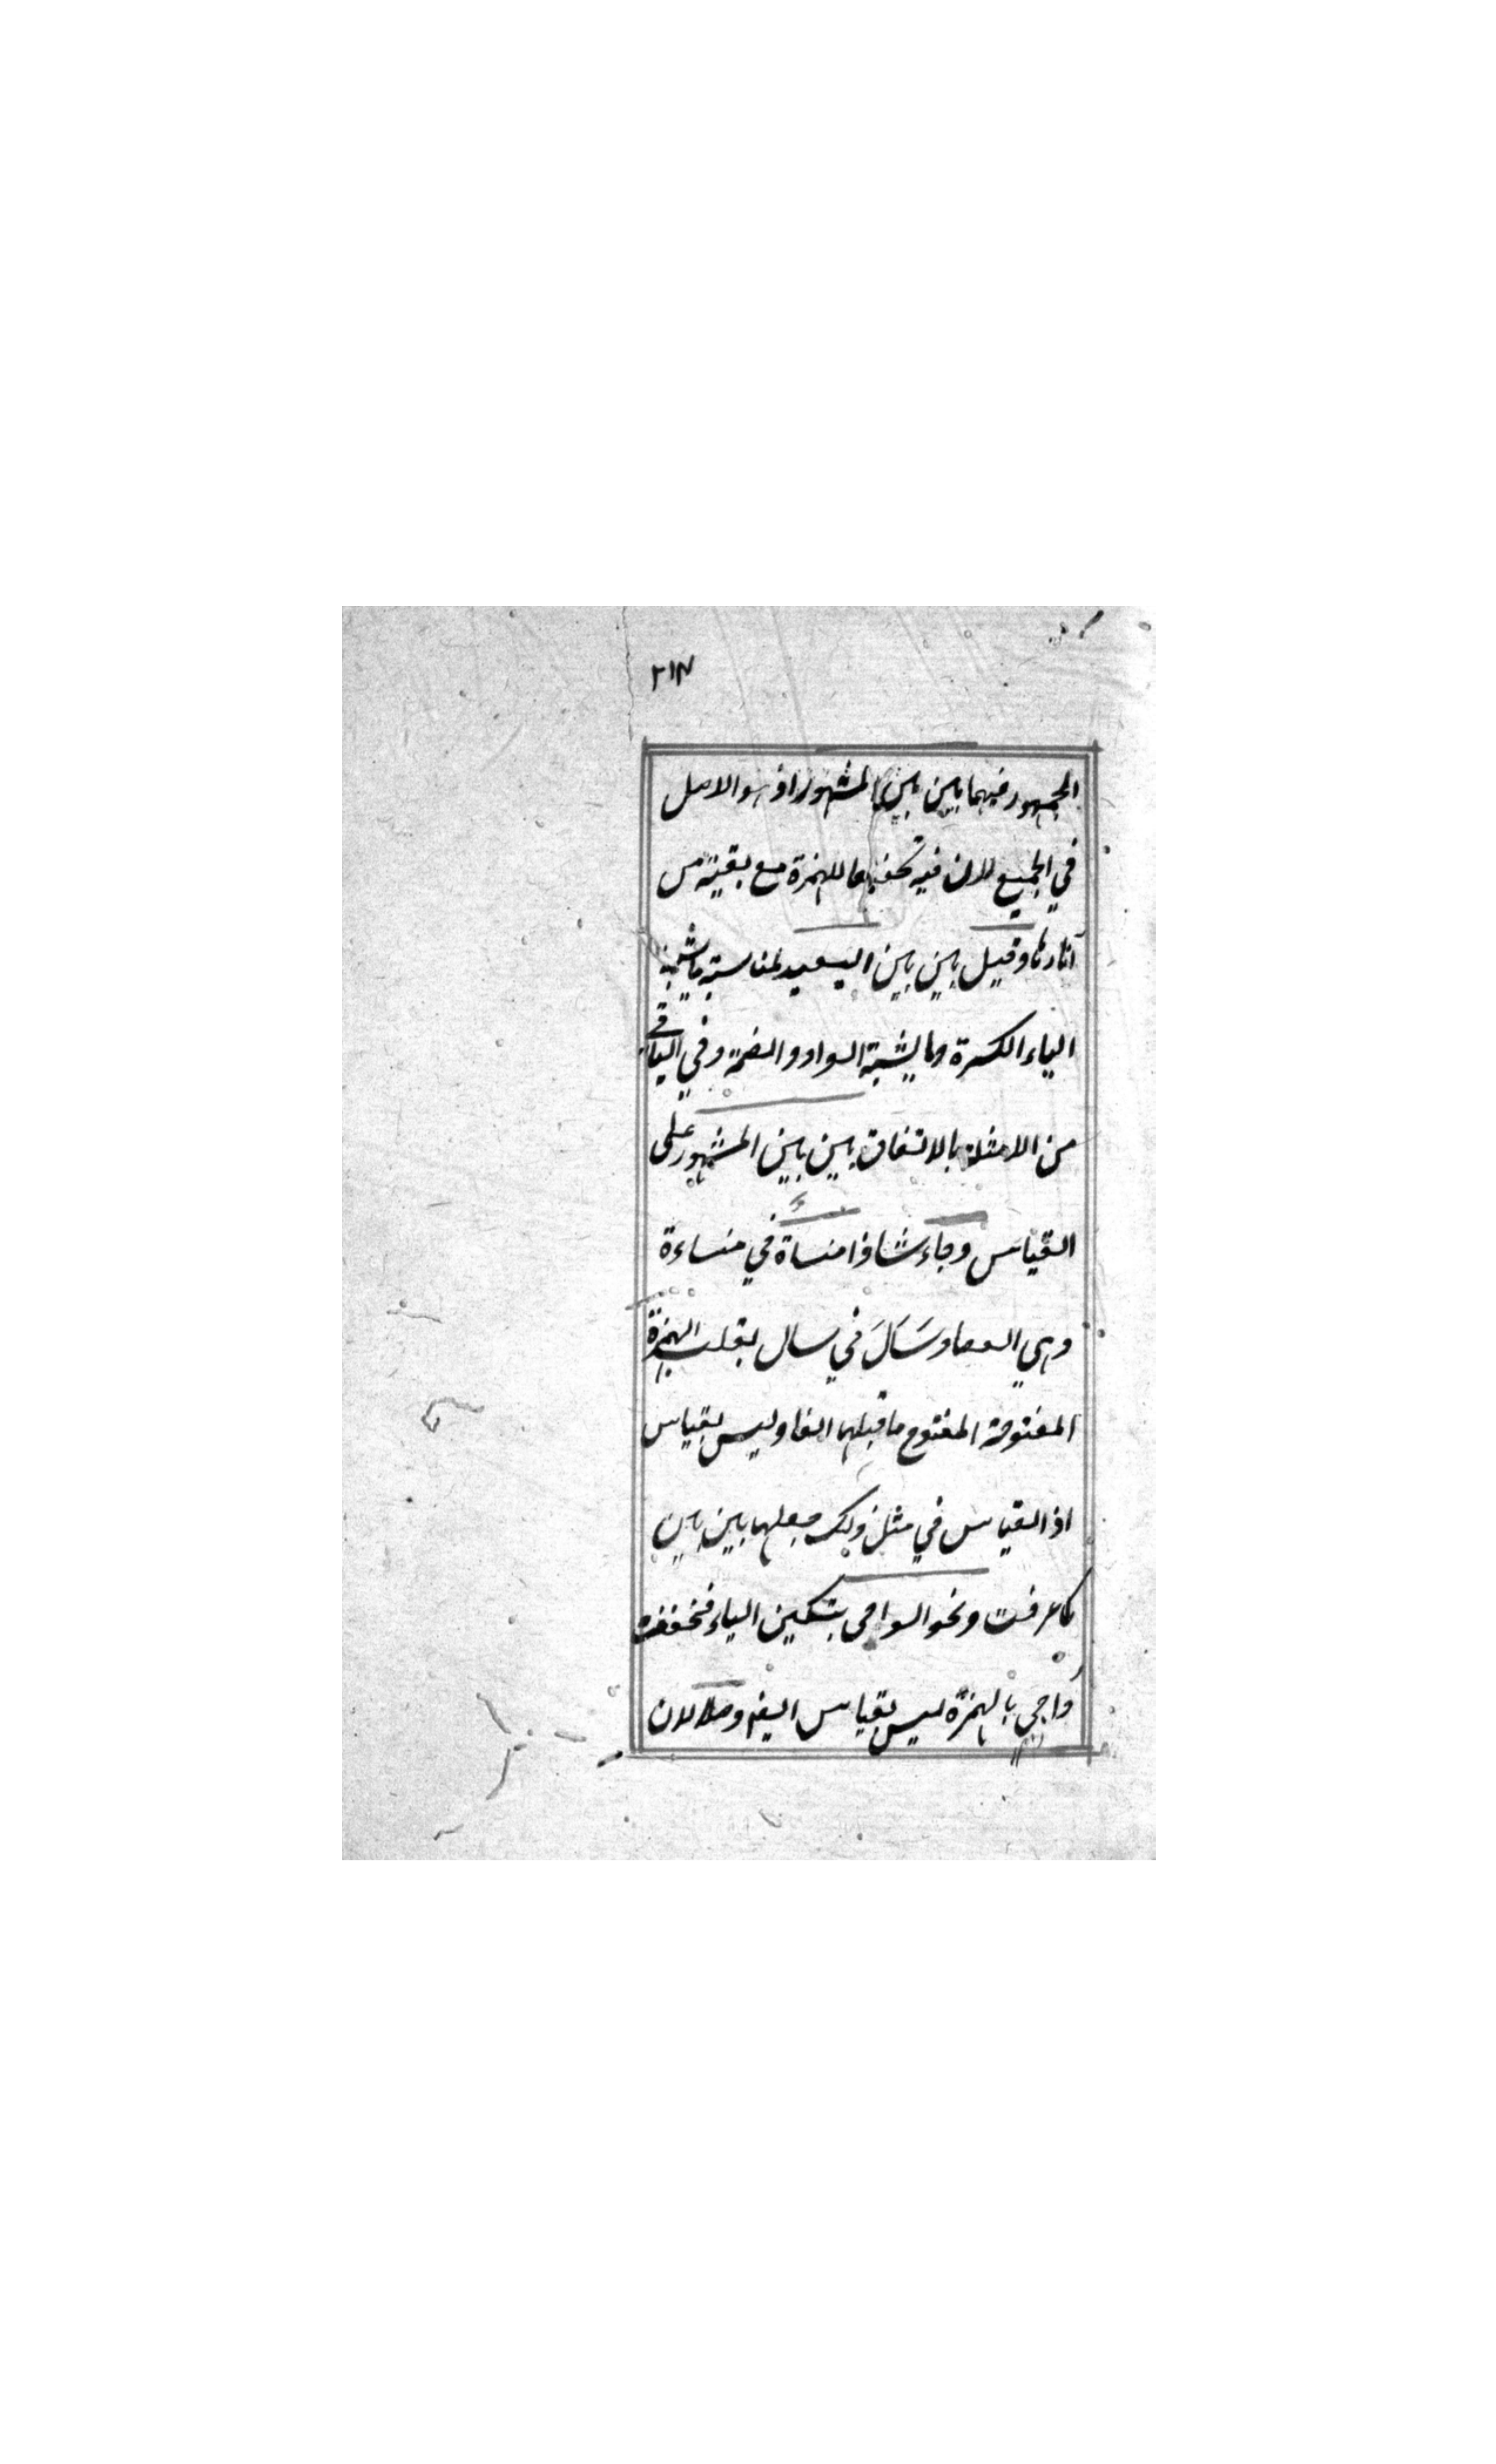 ٢١٣
الجمهور فيهما بين بين المشهور اذ هو الاصل
في الجميع لان فيه تخفيفا للهمزة مع بقية من
آثارها وقيل بين بين البعيد لمناسبة ما يشبه
الياء الكسرة وما يشبه الواو والضمة وفي الباقي
من الامثلة بالاتفاق بين بين المشهور على
القياس وجاء شاذا منساة في منساءة
وهي العصا وسَالَ في سال بقلب الهمزة
المفتوحة المفتوح ما قبلها الفا وليس بقياس
اذ القياس في مثل ذلك جعلها بين بين
كما عرفت ونحو الواجي بتسكين الياء فخففه
واجي بالهمزة ليس بقياس ايضا وصلا لان